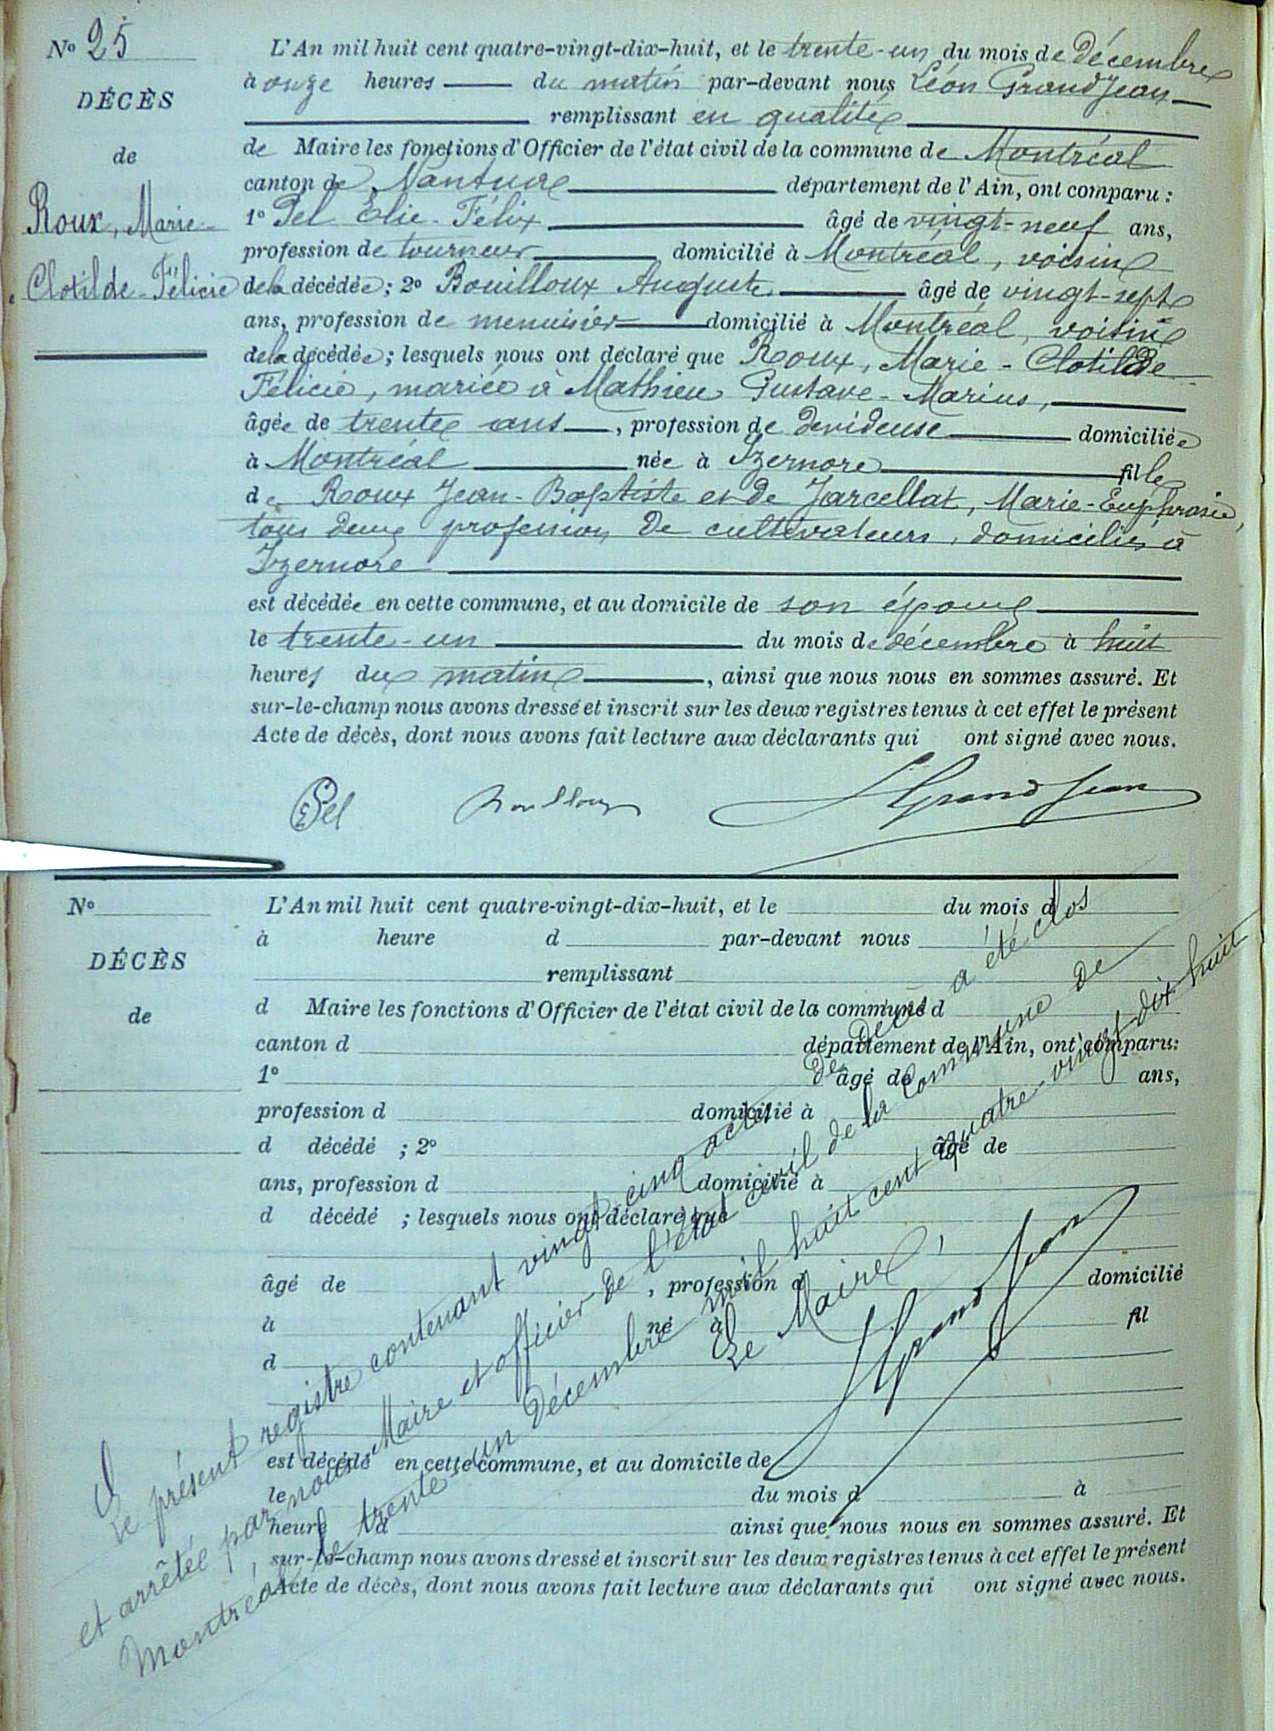 Nº 25
DÉCÈS
de
Roux, Marie-
Clotilde-Félicie
L'An mil huit cent quatre-vingt-dix-huit, et le trente-un du mois de Décembre
à onze heures du matin par-devant nous Léon Grandjean
remplissant en qualité
de Maire les fonctions d'Officier de l'état civil de la commune de Montréal
canton de Nantua département de l'Ain, ont comparu :
1º Pel Elie-Félix âgé de vingt-neuf ans,
profession de tourneur domicilié à Montréal, voisin
de la décédée ; 2º Bouilloux Auguste âgé de vingt-sept
ans, profession de menuisier domicilié à Montréal, voisin
de la décédée ; lesquels nous ont déclaré que Roux, Marie-Clotilde
Félicie, mariée à Mathieu Gustave-Marius,
âgée de trente ans, profession de dévideuse domiciliée
à Montréal née à Izernore fille
de Roux Jean-Baptiste et de Jarcellat, Marie-Euphrasie,
tous deux profession de cultivateurs, domiciliés à
Izernore
est décédée en cette commune, et au domicile de son époux
le trente-un du mois de décembre à huit
heures du matin, ainsi que nous nous en sommes assuré. Et
sur-le-champ nous avons dressé et inscrit sur les deux registres tenus à cet effet le présent
Acte de décès, dont nous avons fait lecture aux déclarants qui ont signé avec nous.
Pel Bouilloux LGrandjean
Nº
DÉCÈS
de
L'An mil huit cent quatre-vingt-dix-huit, et le du mois d
à heure d par-devant nous
remplissant
d Maire les fonctions d'Officier de l'état civil de la commune d
canton d département de l'Ain, ont comparu:
1º âgé de ans,
profession d domicilié à
d décédé ; 2º âgé de
ans, profession d domicilié à
d décédé ; lesquels nous ont déclaré que
âgé de , profession d domicilié
à né à fil
d
est décédé en cette commune, et au domicile de
le du mois d à
heure d ainsi que nous nous en sommes assuré. Et
sur-le-champ nous avons dressé et inscrit sur les deux registres tenus à cet effet le présent
Acte de décès, dont nous avons fait lecture aux déclarants qui ont signé avec nous.
Le présent registre contenant vingt-cinq actes de décès a été clos
et arrêté par nous Maire et officier de l'état civil de la commune de
Montréal, le trente-un Décembre mil huit cent quatre-vingt-dix-huit
Le Maire,
LGrandjean